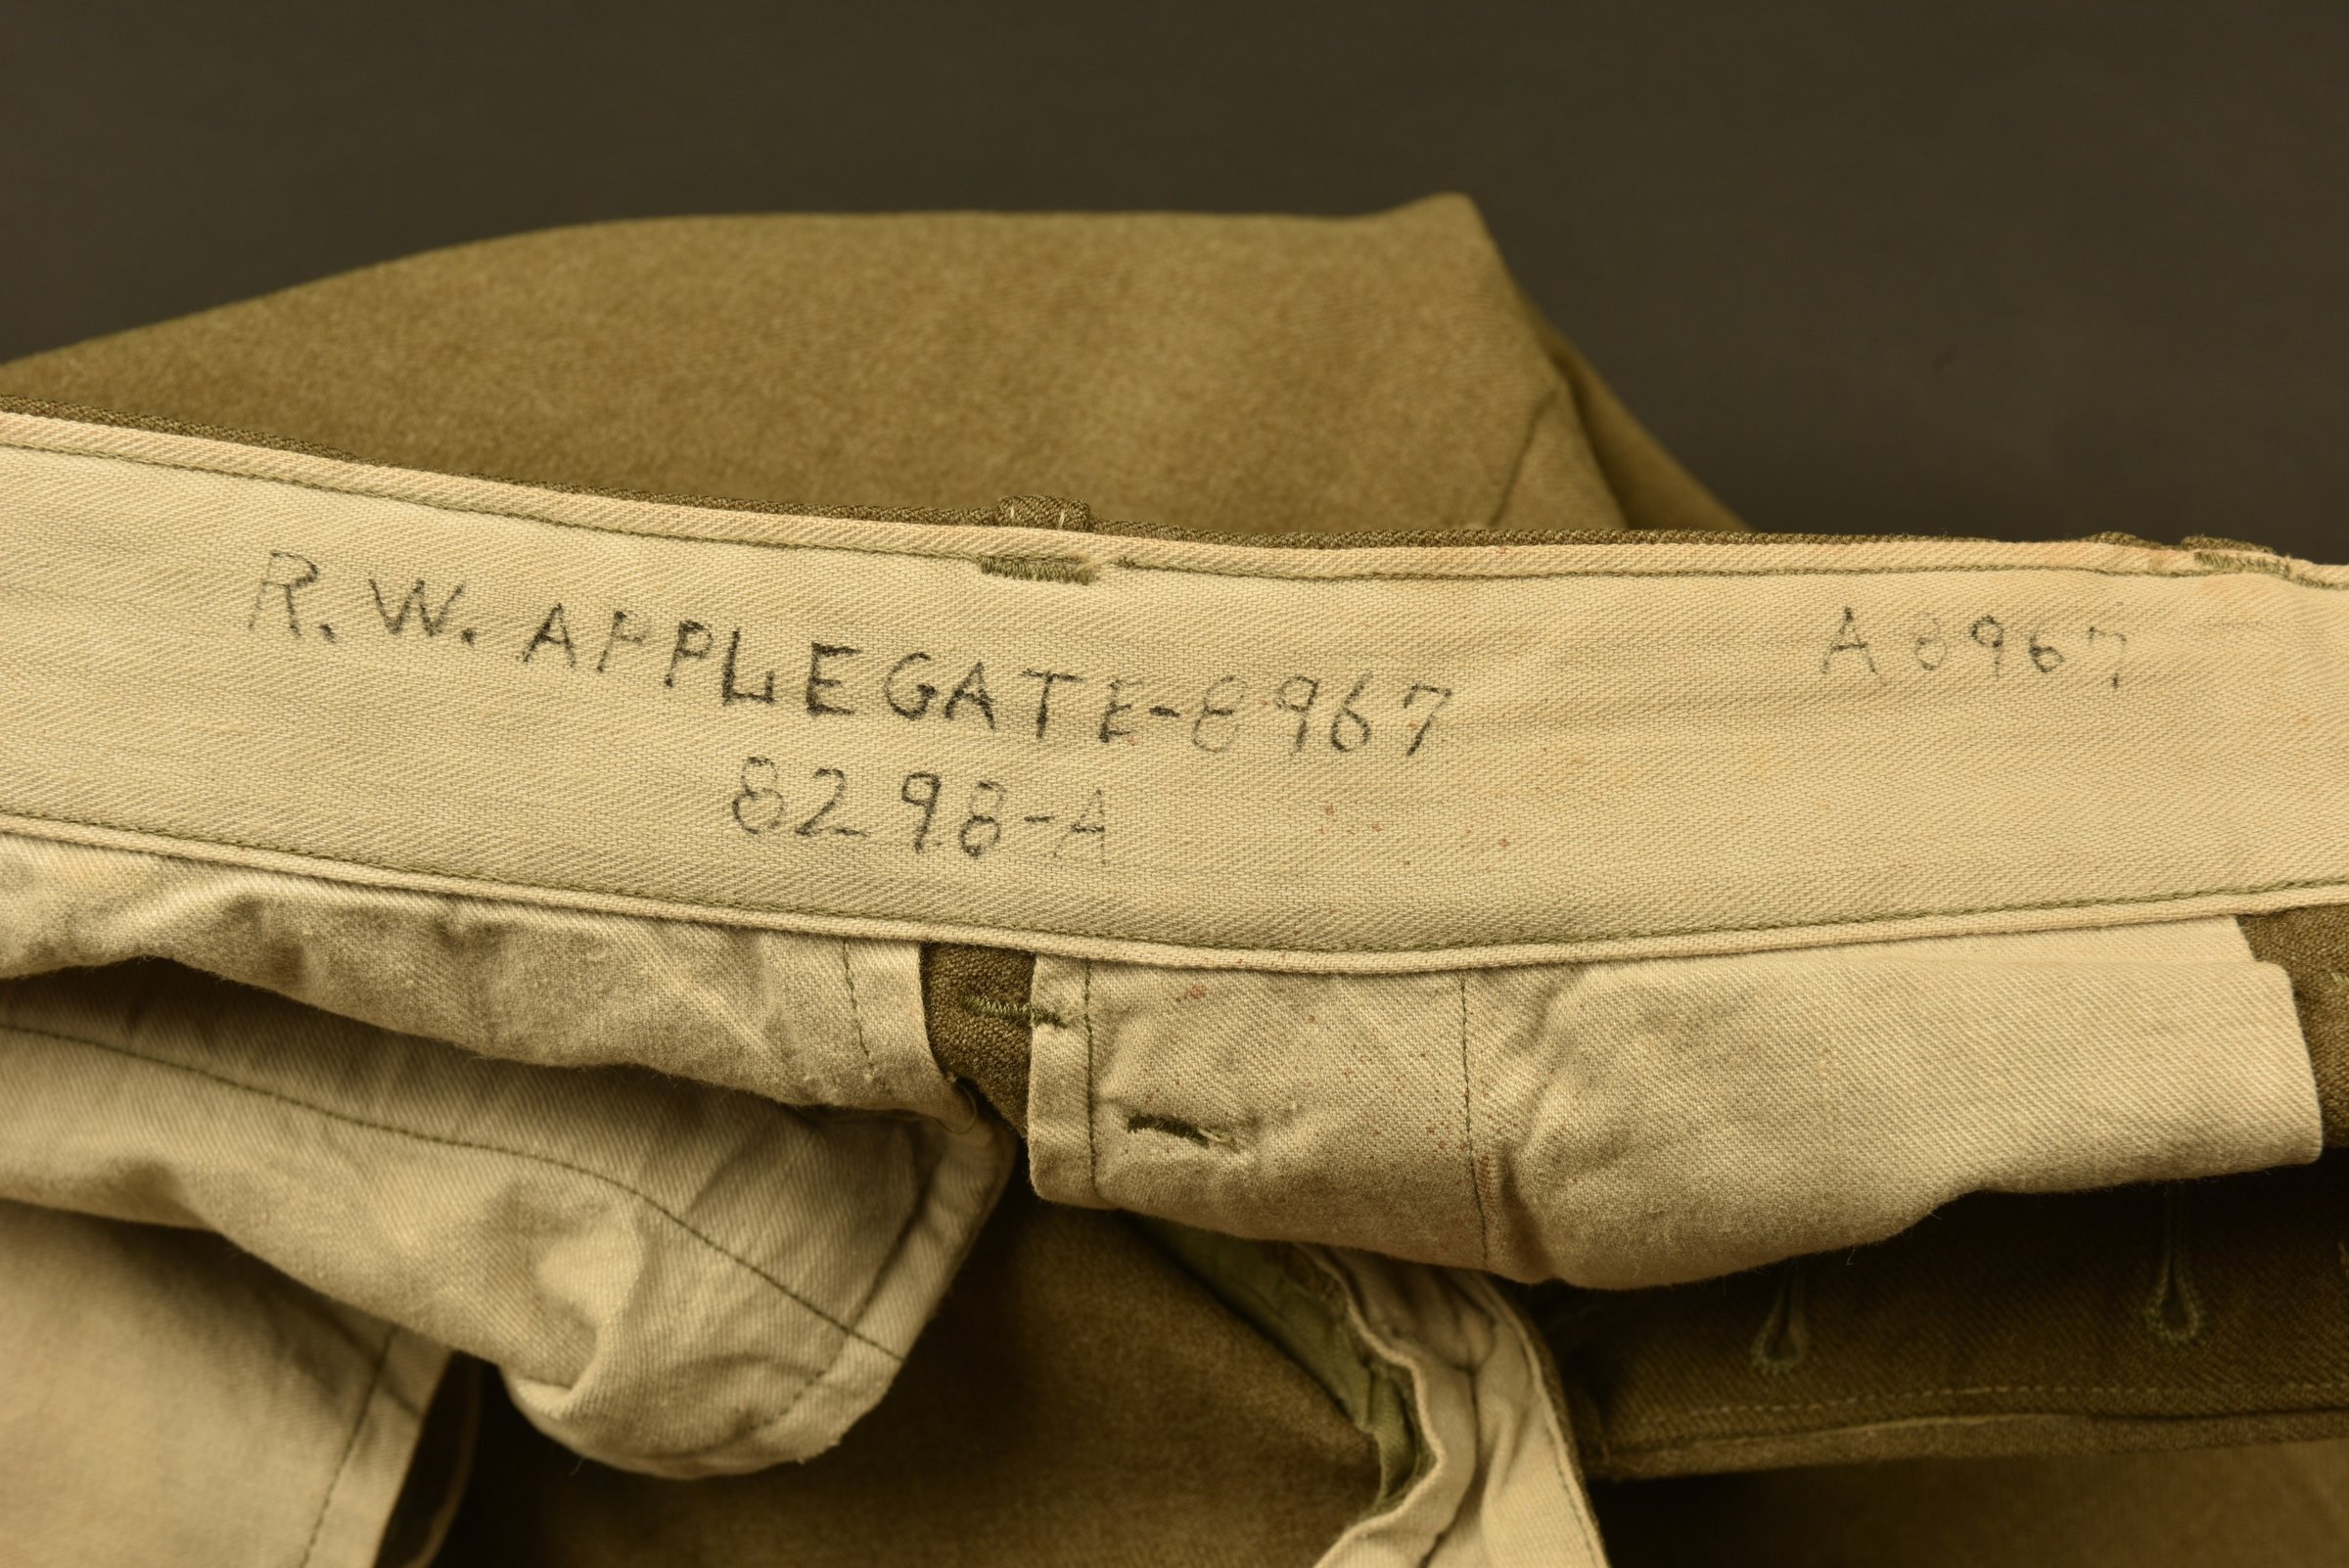 R.W. APPLEGATE-8967
8298-A
A8967